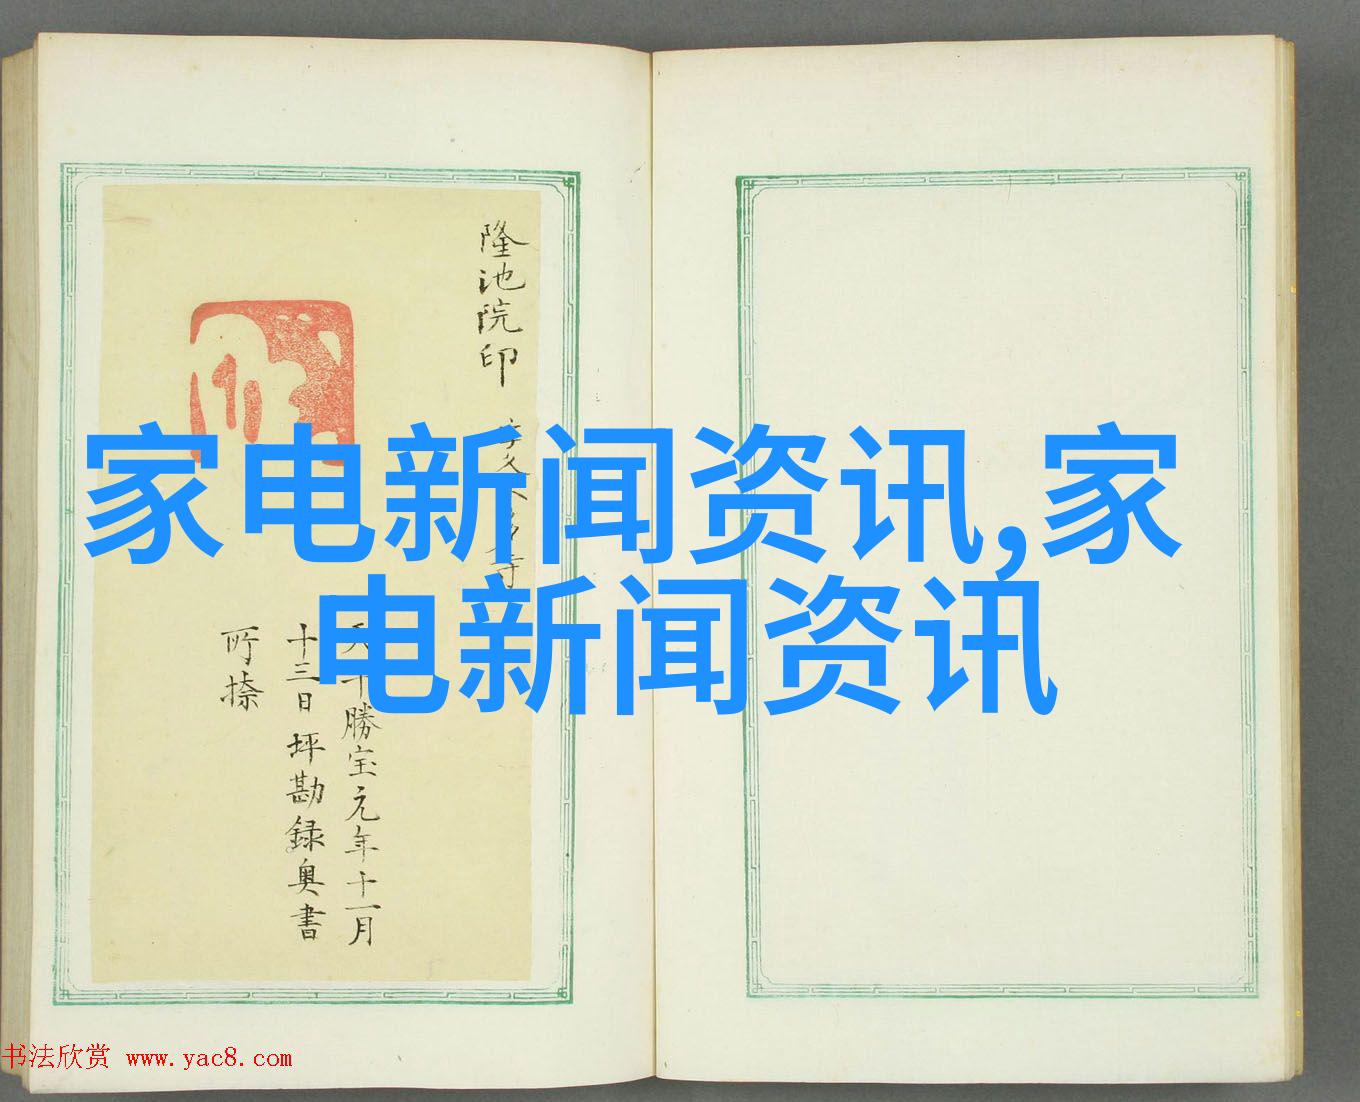 家电新闻资讯,家
电新闻资讯
隆池院印
天平勝宝元年十一月
十三日坪勘録奥書
所捺
书法欣赏 www.yac8.com